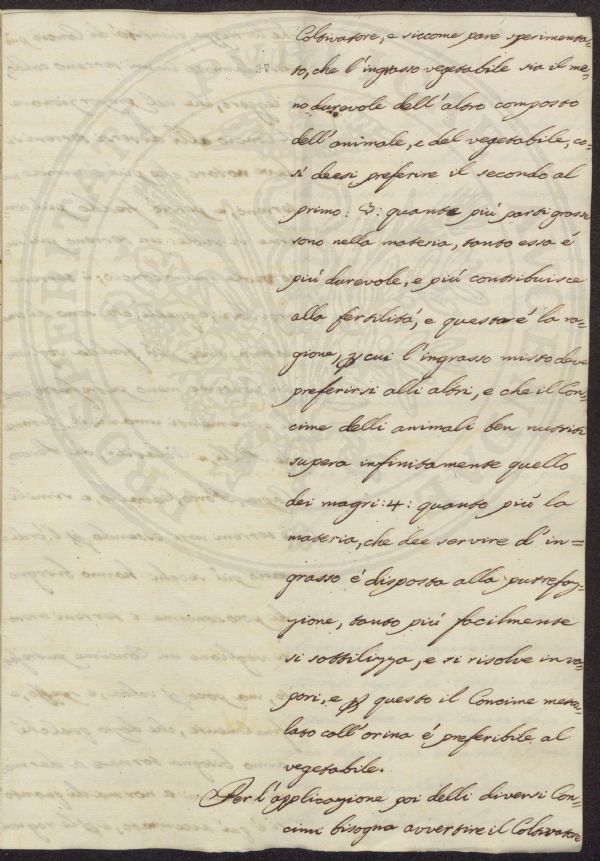 Coltivatore, e siccome pare sperimenta-
27
to, che l'ingrasso vegetabile sia il me-
no durevole dell'altro composto
dell'animale, e del vegetabile, co-
sì deesi preferire il secondo al
primo: 3: quante più parti grasse
sono nella materia, tanto essa é
più durevole, e più contribuisce
alla fertilità, e questa é la ra-
gione, p cui l'ingrasso misto deve
preferirsi alli altri, e che il Con-
cime delli animali ben nutriti
supera infinitamente quello
dei magri: 4: quanto più la
materia, che dee servire d'in=
grasso é disposta alla putrefaz-
zione, tanto più facilmente
si sottilizza, e si risolve in va-
pori, e p questo il Concime mesco-
lato coll'orina é preferibile al
vegetabile.
Per l'applicazione poi delli diversi Con-
cimi bisogna avvertire il Coltivatore